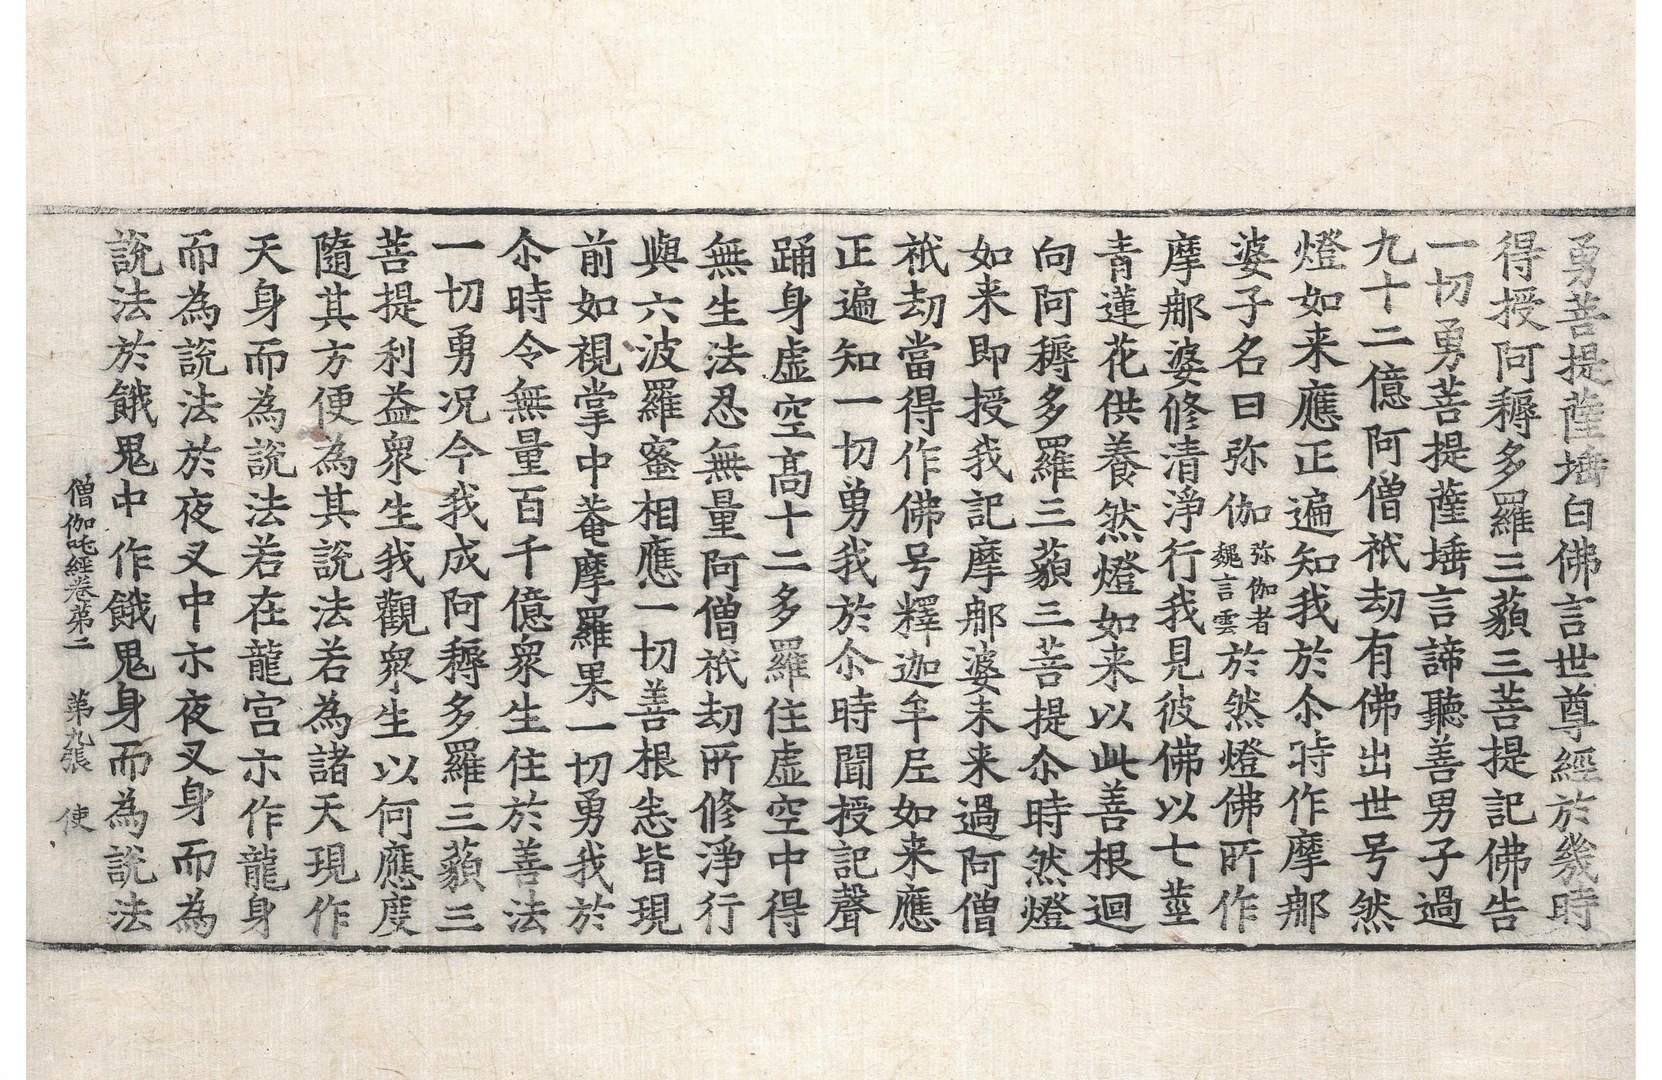 勇菩提薩埵白佛言世尊經於幾時
得授阿耨多羅三藐三菩提記佛告
一切勇菩提薩埵言諦聽善男子過
九十二億阿僧祇劫有佛出世号然
燈如来應正遍知我於尒時作摩𨚗
婆子名曰弥伽弥伽者魏言雲於然燈佛所作
摩𨚗婆修清淨行我見彼佛以七莖
青蓮花供養然燈如来以此善根迴
向阿耨多羅三藐三菩提尒時然燈
如来即授我記摩𨚗婆未来過阿僧
祇劫當得作佛号釋迦牟尼如来應
正遍知一切勇我於尒時聞授記聲
踊身虚空高十二多羅住虚空中得
無生法忍無量阿僧祇劫所修淨行
與六波羅蜜相應一切善根悉皆現
前如視掌中菴摩羅果一切勇我於
尒時令無量百千億衆生住於善法
一切勇况今我成阿耨多羅三藐三
菩提利益衆生我觀衆生以何應度
隨其方便為其說法若為諸天現作
天身而為說法若在龍宫亦作龍身
而為說法於夜叉中亦夜叉身而為
說法於餓鬼中作餓鬼身而為說法
僧伽吒經卷苐二 苐九張 使